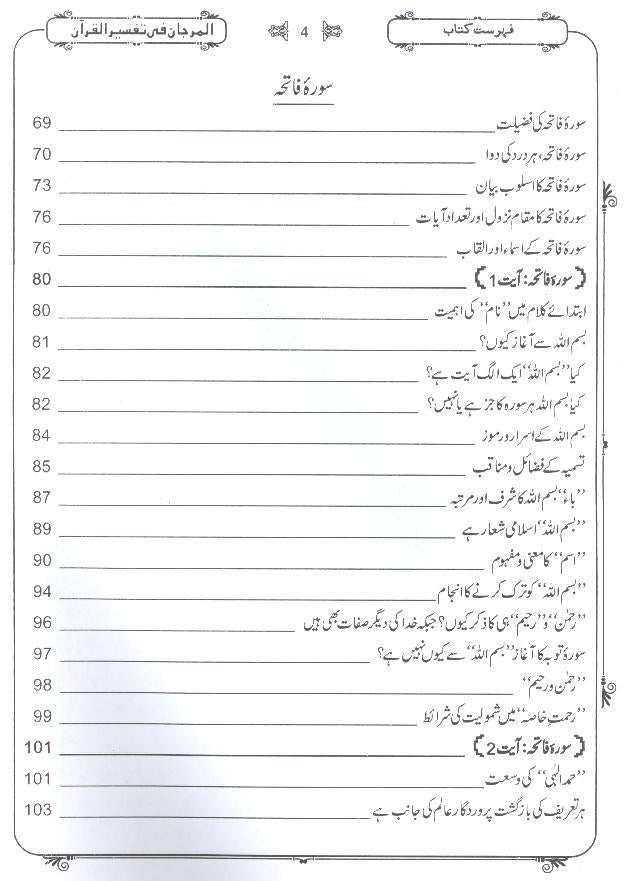 فہرست کتاب 4 المرجان فی تفسیر القرآن
سورۂ فاتحہ
سورۂ فاتحہ کی فضیلت 69
سورۂ فاتحہ، ہر درد کی دوا 70
سورۂ فاتحہ کا اسلوب بیان 73
سورۂ فاتحہ کا مقام نزول اور تعداد آیات 76
سورۂ فاتحہ کے اسماء اور القاب 76
﴿سورۂ فاتحہ: آیت 1﴾ 80
ابتدائے کلام میں ‘‘نام’’ کی اہمیت 80
بسم اللہ سے آغاز کیوں؟ 81
کیا ‘‘بسم اللہ’’ ایک الگ آیت ہے؟ 82
کیا بسم اللہ ہر سورہ کا جز ہے یا نہیں؟ 82
بسم اللہ کے اسرار و رموز 84
تسمیہ کے فضائل و مناقب 85
‘‘باء’’ بسم اللہ کا شرف اور مرتبہ 87
‘‘بسم اللہ’’ اسلامی شعار ہے 89
‘‘اسم’’ کا معنی و مفہوم 90
‘‘بسم اللہ’’ کو ترک کرنے کا انجام 94
‘‘رحمٰن’’ و ‘‘رحیم’’ ہی کا ذکر کیوں؟ جبکہ خدا کی دیگر صفات بھی ہیں 96
سورۂ توبہ کا آغاز ‘‘بسم اللہ’’ سے کیوں نہیں ہے؟ 97
‘‘رحمٰن و رحیم’’ 98
‘‘رحمتِ خاصہ’’ میں شمولیت کی شرائط 99
﴿سورۂ فاتحہ: آیت 2﴾ 101
‘‘حمد الٰہی’’ کی وسعت 101
ہر تعریف کی بازگشت پروردگار عالم کی جانب ہے 103